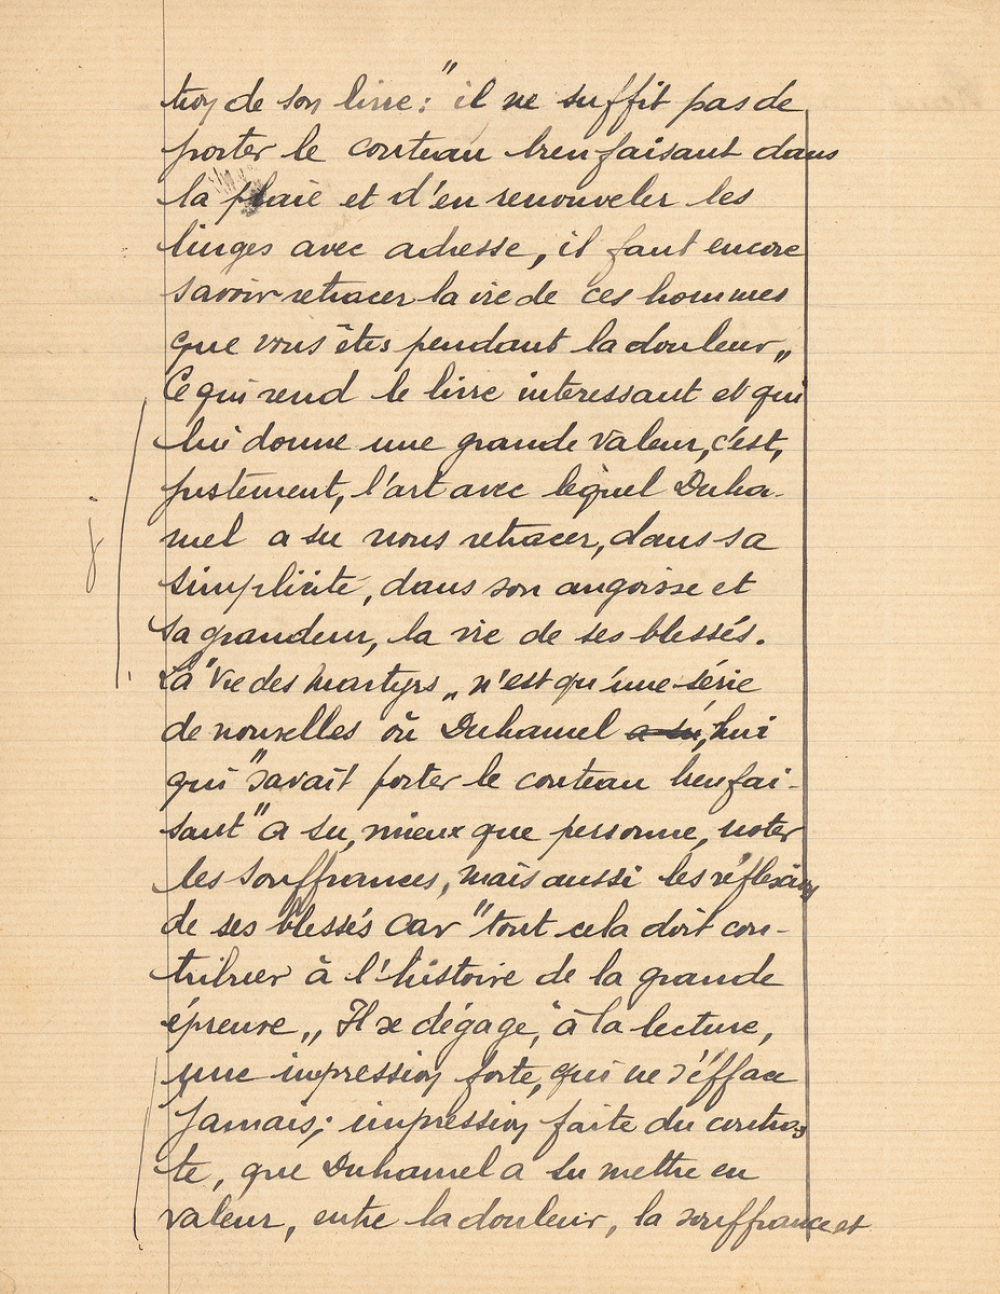 tion de son livre : " il ne suffit pas de
porter le couteau bienfaisant dans
la plaie et d'en renouveler les
linges avec adresse, il faut encore
savoir retracer la vie de ces hommes
que vous êtes pendant la douleur „
Ce qui rend le livre interessant et qui
lui donne une grande valeur, c'est,
justement, l'art avec lequel Duha-
mel a su nous retracer, dans sa
simplicité, dans son angoisse et
sa grandeur, la vie de ses blessés.
La "Vie des Martyrs „ n'est qu'une série
de nouvelles où Duhamel a su, lui
qui "savait porter le couteau bienfai-
sant" a su, mieux que personne, noter
les souffrances, mais aussi les réflexions
de ses blessés car "tout cela doit con-
tribuer à l'histoire de la grande
épreuve „ Il se dégage, à la lecture,
une impression forte, qui ne s'efface
jamais ; impression faite du contras
te, que Duhamel a su mettre en
valeur, entre la douleur, la souffrance et